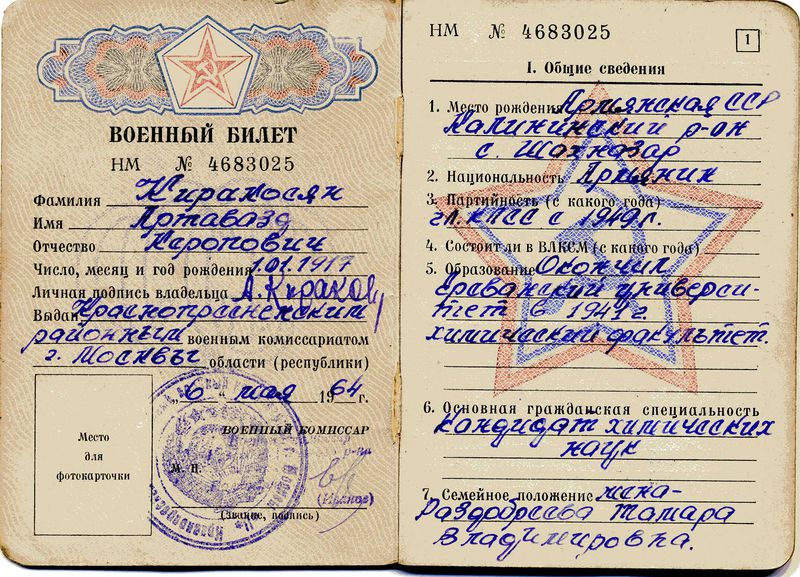 ВОЕННЫЙ БИЛЕТ
НМ № 4683025
Фамилия Киракосян
Имя Артавазд
Отчество Керопович
Число, месяц и год рождения 1.01.1917
Личная подпись владельца А.Киракос
Выдан Краснопресненским
районным военным комиссариатом
г. Москвы области (республики)
„6" мая 1964 г.
ВОЕННЫЙ КОМИССАР
Место
для
фотокарточки
М. П.
(Звание, подпись)
НМ № 4683025
1
I. Общие сведения
1. Место рождения Армянская ССР
Калининский р-он
с. Шахназар
2. Национальность Армянин
3. Партийность (с какого года)
чл. КПСС с 1949 г.
4. Состоит ли в ВЛКСМ (с какого года)
5. Образование Окончил
Ереванский универси-
тет в 1941 г
химический факультет.
6. Основная гражданская специальность
кандидат химических
наук
7. Семейное положение жена-
Тамара
Владимировна.